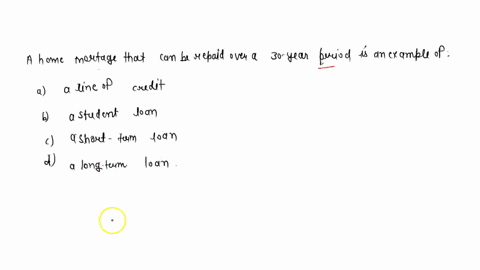 A home mortage that can be repaid over a 30-year period is an example of:
a) a line of credit
b) a student loan
c) a short-term loan
d) a long-term loan.